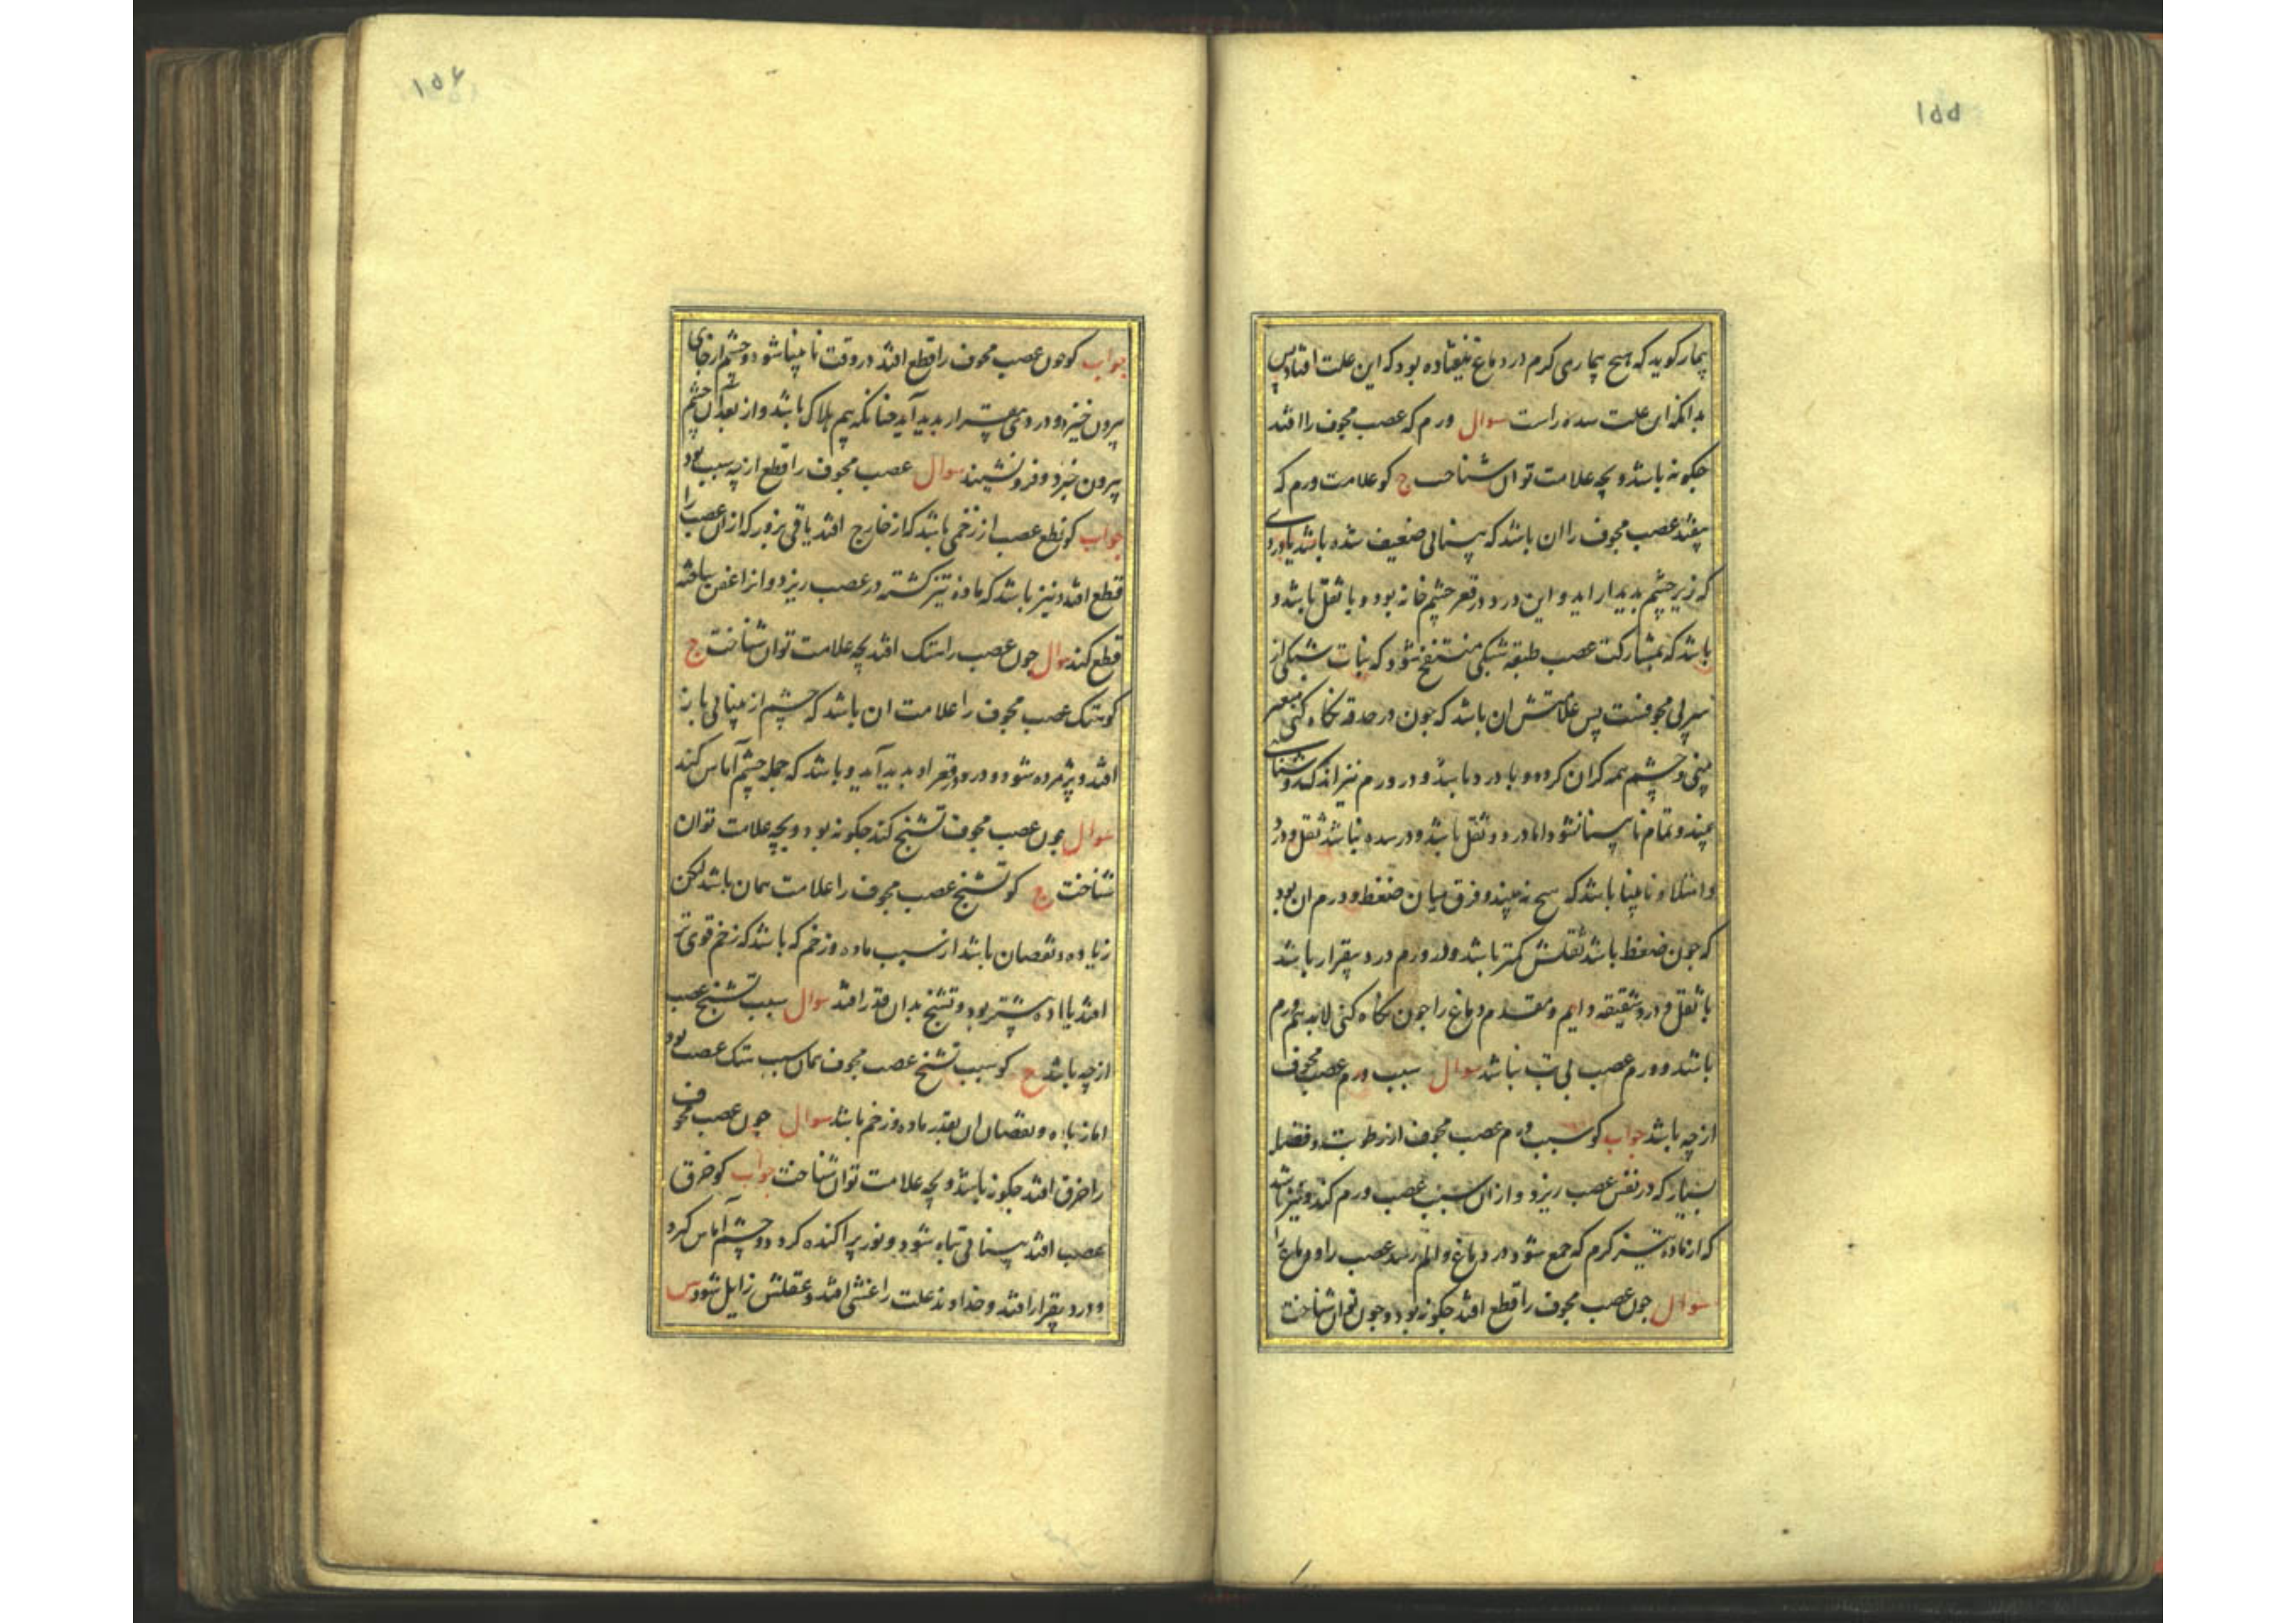 ۱۵۵
بیمار کوید که هیچ بیماری کرم در دماغ نیفتاده بود که این علت افتاد پس
بدانکه ان علت سده راست سوال ورم که عصب مجوف را افتد
چکونه باشد و بچه علامت توان شناخت ج کو علامت ورم که
بیفتد عصب مجوف را ان باشد که بینائی ضعیف شده باشد یا دردی
که زیر چشم بدیدار اید و این درد در قعر چشم خانه بود و با ثقل باشد و
باشد که بمشارکت عصب طبقه شبکی منتفخ شود که نبات شبکی از
مجوفست پس علامتش ان باشد که چون در حدقه نکاه کنی
بینی و چشم همه کران کرده و با درد باشد و در ورم نیز اندک روشنائی
بیند و تمام نابینا نشود اما درد و ثقل باشد و در سده نباشد ثقل و درد
و امتلا و نابینا باشد که هیچ نه بیند و فرق میان ضغط و ورم ان بود
که چون ضغط باشد ثقلش کمتر باشد و در ورم درد بیقرار باشد
با ثقل و درد شقیقه دایم و مقدم دماغ را چون نکاه کنی لابد هم ورم
باشد و ورم عصب بی تب نباشد سوال سبب ورم عصب مجوف
از چه باشد جواب کو سبب ورم عصب مجوف از رطوبت و فضله
بسیار که در نفس عصب ریزد و از ان سبب عصب ورم کند و نیز باشد
که از ماده تیز کرم که جمع شود در دماغ و الم رسد عصب را و دماغ را
سوال چون عصب مجوف را قطع افتد چکونه بود و چون توان شناخت
۱۵۶
جواب کو چون عصب مجوف را قطع افتد در وقت نابینا شود و چشم از جای
بیرون خیزد و دردی بیقرار بدید آید چنانکه بیم هلاک باشد و از بعد آن چشم
بیرون خیزد و فرو نشیند سوال عصب مجوف را قطع از چه سبب بود
جواب کو قطع عصب از زخمی باشد که از خارج افتد یا قی بزور که از ان عصب را
قطع افتد و نیز باشد که ماده تیز کشته در عصب ریزد و انرا عفن ساخته
قطع کند سوال چون عصب را هتک افتد بچه علامت توان شناخت ج
کو هتک عصب مجوف را علامت ان باشد که چشم از بینائی باز
افتد و پژمرده شود و درد در قعر او بدید آید و باشد که جمله چشم آماس کند
سوال چون عصب مجوف تشنج کند چکونه بود و بچه علامت توان
شناخت ج کو تشنج عصب مجوف را علامت همان باشد لکن
زیاده و نقصان باشد از سبب ماده و زخم که باشد که زخم قوی تر
افتد یا ماده بیشتر بود و تشنج بدان قدر افتد سوال سبب تشنج عصب
از چه باشد ج کو سبب تشنج عصب مجوف همان سبب هتک عصب بود
اما زیاده و نقصان ان بقدر ماده و زخم باشد سوال چون عصب مجوف
را خرق افتد چکونه باشد و بچه علامت توان شناخت جواب کو خرق
عصب افتد بینائی تباه شود و نور پراکنده کردد و چشم آماس کیرد
و درد بیقرار افتد و خداوند علت را غشی افتد و عقلش زایل شود س